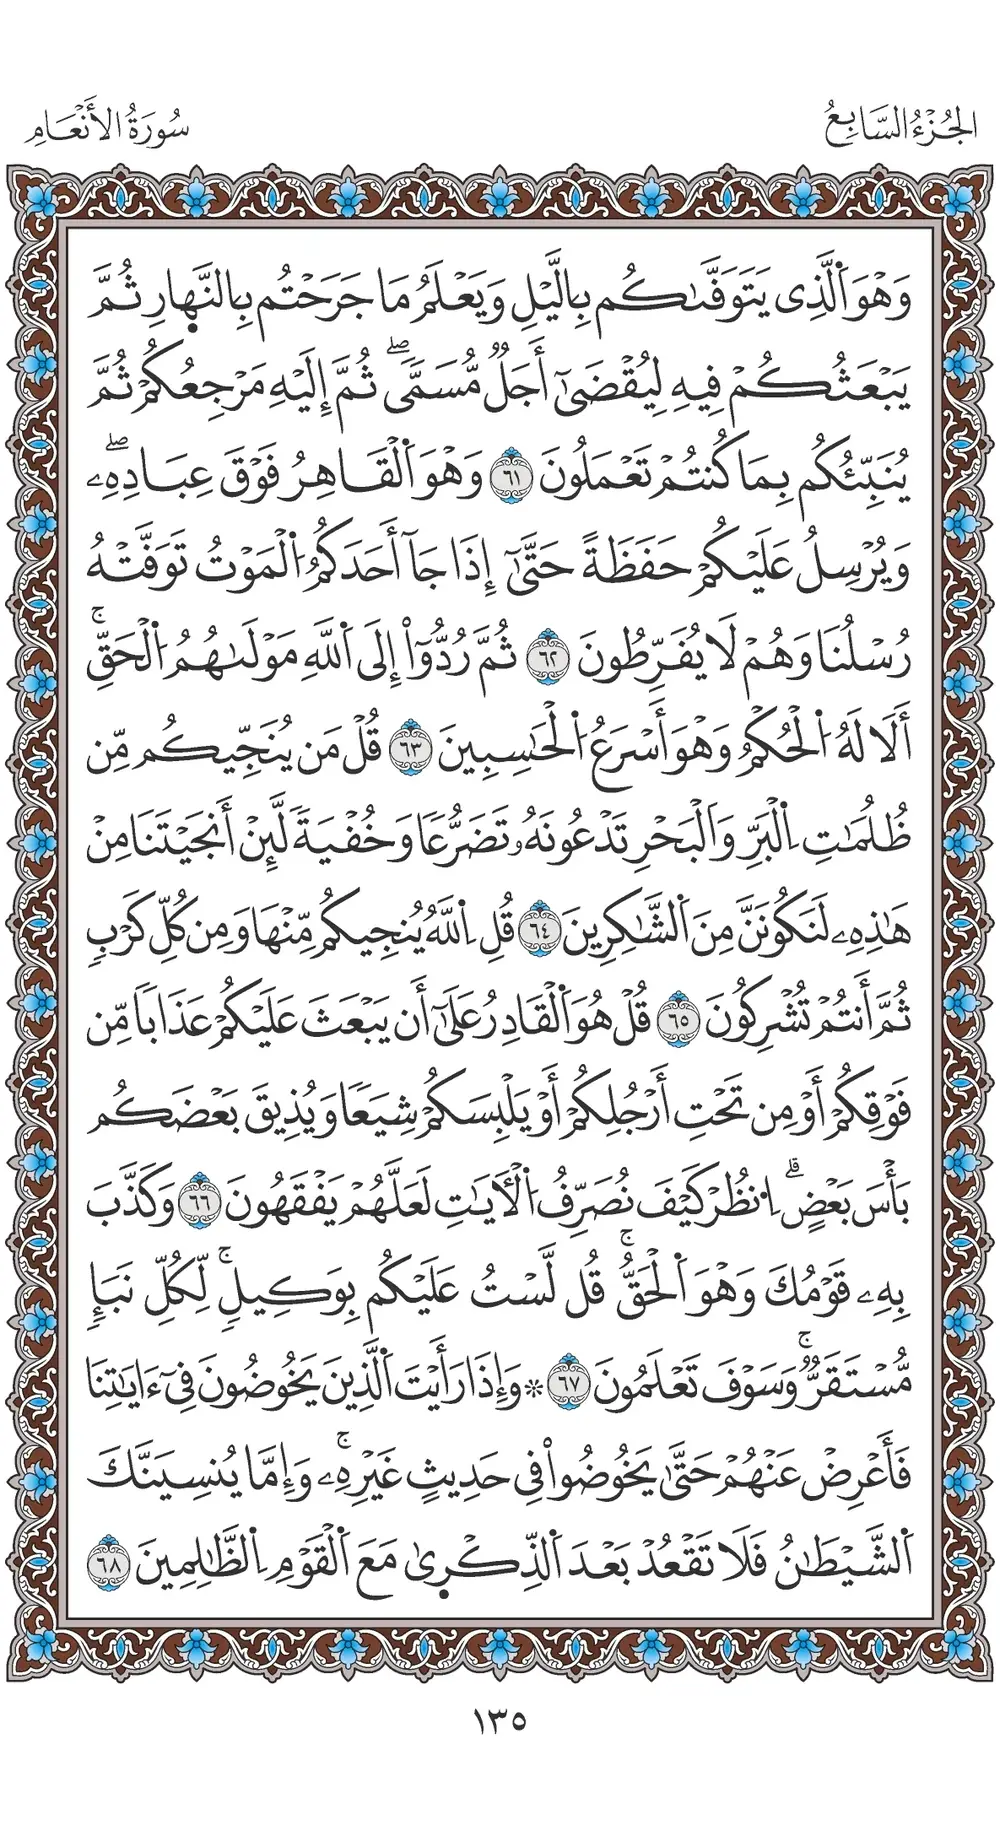 الجُزْءُ السَّابِعُ
سُورَةُ الأَنْعَامِ
وَهْوَ اَ۬لَّذِى يَتَوَفَّىٰكُم بِالَّيْلِ وَيَعْلَمُ مَا جَرَحْتُم بِالنَّهِارِ ثُمَّ
يَبْعَثُكُمْ فِيهِ لِيُقْضَىٰٓ أَجَلٌ مُّسَمًّىۖ ثُمَّ إِلَيْهِ مَرْجِعُكُمْ ثُمَّ
يُنَبِّئُكُم بِمَا كُنتُمْ تَعْمَلُونَ ٦١ وَهْوَ اَ۬لْقَاهِرُ فَوْقَ عِبَادِهِۦۖ
وَيُرْسِلُ عَلَيْكُمْ حَفَظَةً حَتَّىٰٓ إِذَا جَآ أَحَدَكُمُ اُ۬لْمَوْتُ تَوَفَّتْهُ
رُسْلُنَا وَهُمْ لَا يُفَرِّطُونَ ٦٢ ثُمَّ رُدُّوٓاْ إِلَى اَ۬للَّهِ مَوْلَىٰهُمُ اُ۬لْحَقِّۚ
أَلَا لَهُ اُ۬لْحُكْمُ وَهْوَ أَسْرَعُ اُ۬لْحَٰسِبِينَ ٦٣ قُلْ مَن يُنَجِّيكُم مِّن
ظُلُمَٰتِ اِ۬لْبَرِّ وَالْبَحْرِ تَدْعُونَهُۥ تَضَرُّعًا وَخُفْيَةً لَّئِنْ أَنجَيْتَنَا مِنْ
هَٰذِهِۦ لَنَكُونَنَّ مِنَ اَ۬لشَّٰكِرِينَ ٦٤ قُلِ اِ۬للَّهُ يُنجِيكُم مِّنْهَا وَمِن كُلِّ كَرْبٍ
ثُمَّ أَنتُمْ تُشْرِكُونَ ٦٥ قُلْ هُوَ اَ۬لْقَادِرُ عَلَىٰٓ أَن يَبْعَثَ عَلَيْكُمْ عَذَابًا مِّن
فَوْقِكُمْ أَوْ مِن تَحْتِ أَرْجُلِكُمْ أَوْ يَلْبِسَكُمْ شِيَعًا وَيُذِيقَ بَعْضَكُم
بَأْسَ بَعْضٍۗ اِ۟نظُرْ كَيْفَ نُصَرِّفُ اُ۬لْأٓيَٰتِ لَعَلَّهُمْ يَفْقَهُونَ ٦٦ وَكَذَّبَ
بِهِۦ قَوْمُكَ وَهْوَ اَ۬لْحَقُّۚ قُل لَّسْتُ عَلَيْكُم بِوَكِيلٍۚ لِّكُلِّ نَبَإٍ
مُّسْتَقَرٌّۚ وَسَوْفَ تَعْلَمُونَ ٦٧ ۞ وَإِذَا رَأَيْتَ اَ۬لَّذِينَ يَخُوضُونَ فِىٓ ءَايَٰتِنَا
فَأَعْرِضْ عَنْهُمْ حَتَّىٰ يَخُوضُواْ فِى حَدِيثٍ غَيْرِهِۦۚ وَإِمَّا يُنسِيَنَّكَ
اَ۬لشَّيْطَٰنُ فَلَا تَقْعُدْ بَعْدَ اَ۬لذِّكْرِىٰ مَعَ اَ۬لْقَوْمِ اِ۬لظَّٰلِمِينَ ٦٨
١٣٥